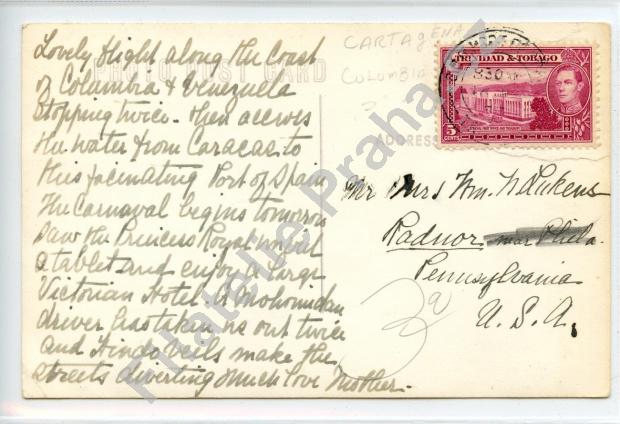 Lovely flight along the Coast
of Columbia & Venezuela
Stopping twice. Then across
the water from Caracas to
this fascinating Port of Spain
The Carnaval begins tomorrow
Saw the Princess Royal unveil
a tablet and enjoy a large
Victorian Hotel. A Mohomidan
driver has taken us out twice
and Hindo veils make the
streets diverting Much love Mother.
PHOTO POST CARD
CARTAGENA
COLUMBIA
?
ADDRESS
TRINIDAD & TOBAGO
5 CENTS
830
Mr Mrs Wm N Lukens
Radnor near Phila.
Pennsylvania
U.S.A.
Filatelie Praha